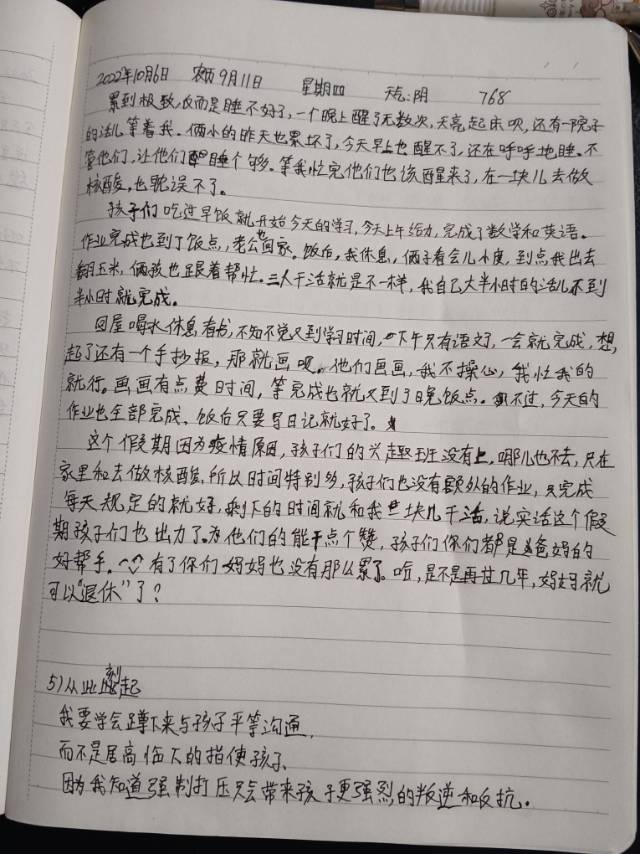 2022年10月6日 农历9月11日 星期四 天气:阴 768
累到极致,反而是睡不好了,一个晚上醒了无数次,天亮起床呗,还有一院子
的活儿等着我。俩小的昨天也累坏了,今天早上也醒不了,还在呼呼地睡。不
管他们,让他们睡个够。等我忙完他们也该醒来了,在一块儿去做
核酸,也耽误不了。
孩子们吃过早饭就开始今天的学习,今天上午给力,完成了数学和英语。
作业完成也到了饭点,老公也回家。饭后,我休息,俩子看会儿小度,到点我出去
翻玉米,俩孩也正跟着帮忙。三人干活就是不一样,我自己大半小时的活儿不到
半小时就完成。
回屋喝水休息看书,不知不觉又到学习时间,下午只有语文了,一会就完成,想
起了还有一个手抄报,那就画呗。他们画画,我不操心,我忙我的
就行。画画有点费时间,等完成也就又到了晚饭点。不过,今天的
作业也全部完成、饭后只要写日记就好了。
这个假期因为疫情原因,孩子们的兴趣班没有上,哪儿也不去,只在
家里和去做核酸,所以时间特别多,孩子们也没有额外的作业,只完成
每天规定的就好,剩下的时间就和我一块儿干活,说实话这个假
期孩子们也出力了。为他们的能干点个赞,孩子们你们都是爸妈的
好帮手。有了你们妈妈也没有那么累了。哈,是不是再过几年,妈妈就
可以“退休”了?
5)从此刻起
我要学会蹲下来与孩子平等沟通,
而不是居高临下的指使孩子、
因为我知道强制打压只会带来孩子更强烈的叛逆和反抗。